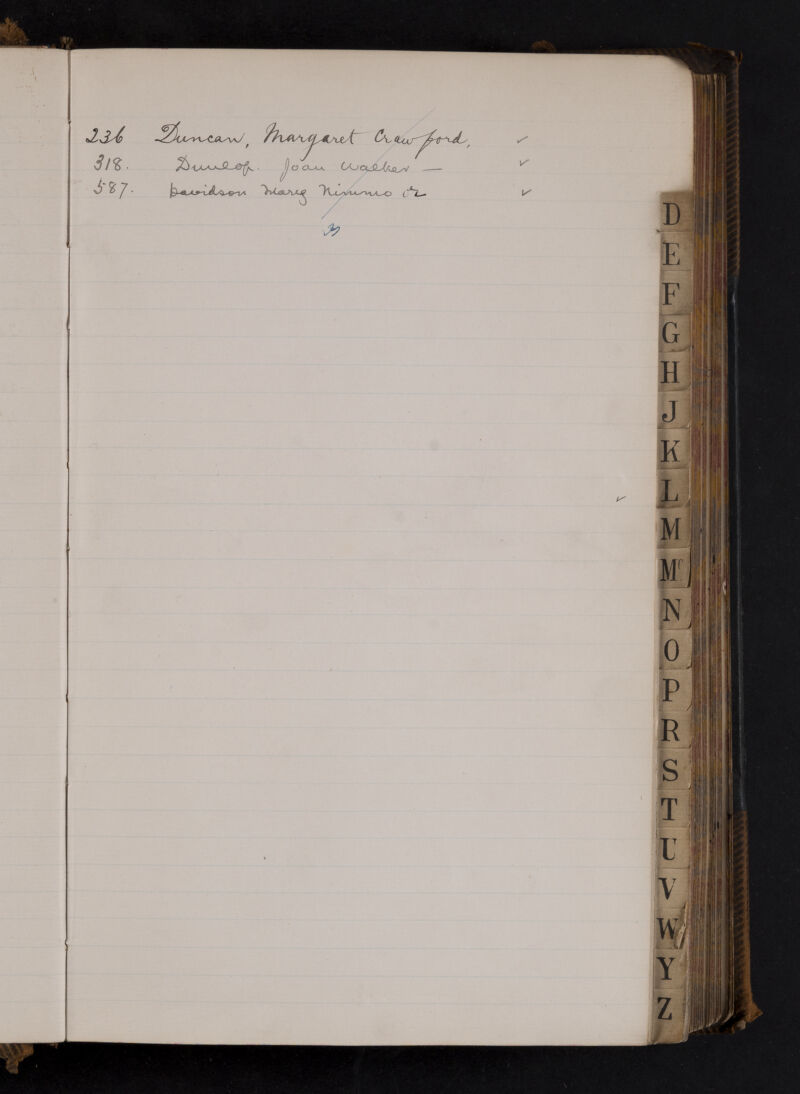 236 Duncan, Margaret Crawford, ✓
318. Dunlop. Joan Walker — ✓
587. Davidson Marg Nimmo or ✓
3
✓
D
E
F
G
H
J
K
L
M
Mc
N
O
P
R
S
T
U
V
W
Y
Z